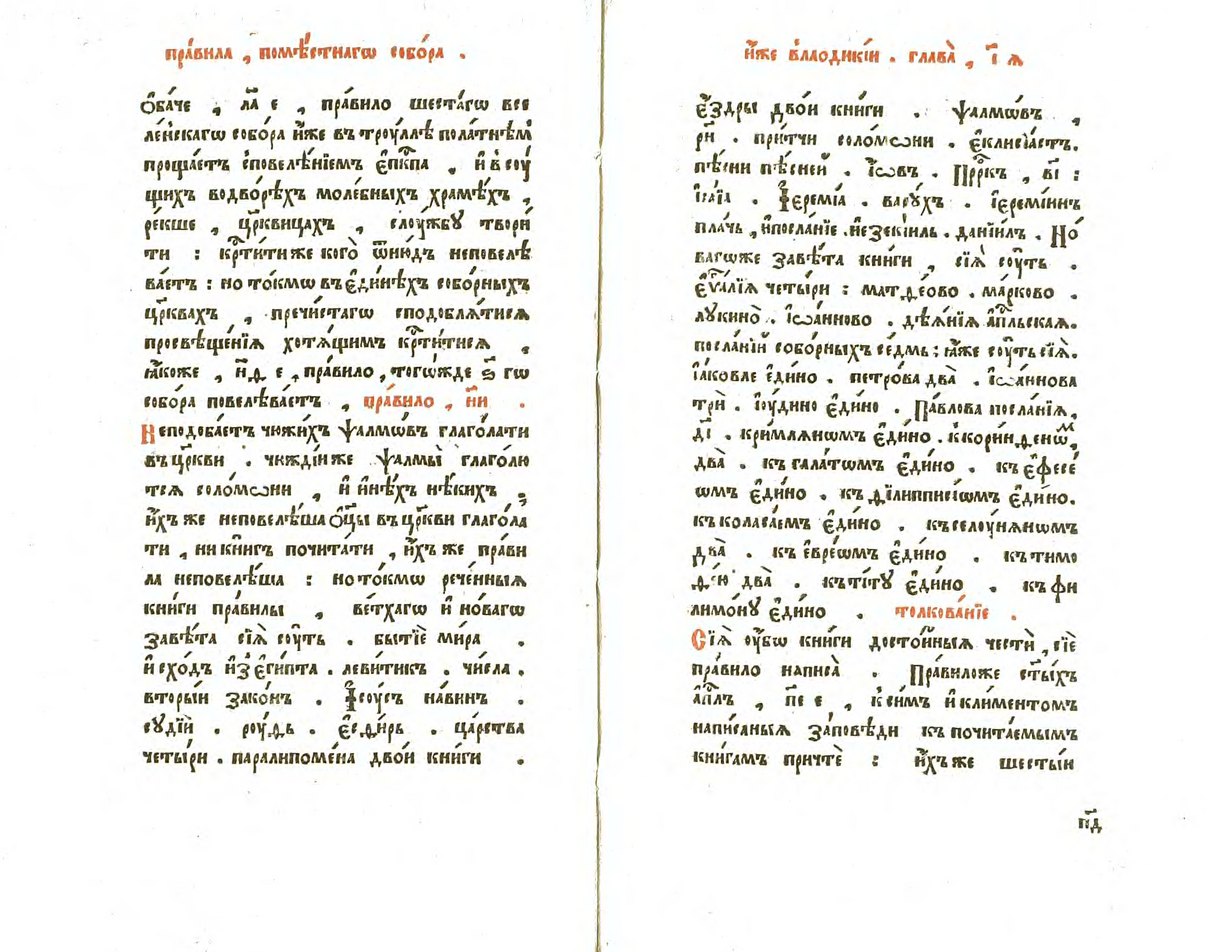 пра́вила , помѣ́стнагѡ собо́ра .
Ѻ҆ба́че , л҃а е , пра́вило шеста́гѡ все
ле́нскагѡ собо́ра и҆́же въ троу́ллѣ пола́тнѣм
проща́етъ споведе́нїемъ є҆пⷭ҇кпа , и҆ в соу́
щихъ водво́рѣхъ моле́бныхъ хра́мѣхъ ,
ре́кше , цр҃квицахъ , слоу́жбꙋ твори́
ти : крⷭ҇ти́ти же кого̀ ѿню́дъ неповелѣ
ва́етъ : но то́кмо въ є҆ди́нѣхъ собо́рныхъ
цр҃квахъ , пречи́стагѡ сподоблѧ́тисѧ
просвѣще́нїѧ хотѧ́щимъ крⷭ҇ти́тисѧ ,
ꙗ҆́коже , н҃ѳ е , пра́вило , тогѡ́жде ѕ҃ гѡ
собо́ра повелѣва́етъ , пра́вило , н҃и .
Неподоба́етъ чюжи́хъ ѱалмѡ́въ глаго́лати
въ цр҃кви . чюжді́и же ѱалмы̀ глаго́лю
тсѧ соломѡни , и҆ и҆нѣ́хъ нѣ́кихъ ,
и҆́хъ же неповелѣ́ша ѻ҆ц҃ы въ цр҃кви глаго́ла
ти , ни кни́гъ почита́ти , и҆́хъ же пра́ви
ла неповелѣ́ша : но то́кмо рече́нныѧ
кни́ги пра́вилы , ве́тхагѡ и҆ но́вагѡ
завѣ́та сїѧ̀ соу́ть . бытїѐ ми́ра .
и҆схо́дъ и҆з̾ є҆ги́пта . леви́тикъ . чи́сла .
вторы́и зако́нъ . І҆соу́съ на́винъ .
сꙋдїй . роу́ѳь . є҆сѳи́рь . ца́рства
четы́ри . паралипоме́на дво́и кни́ги .
и҆́же в лаодикі́и . глава̀ , і҃ ѧ
є҆́здры дво́и кни́ги . ѱалмѡ́въ ,
р҃н . при́тчи соломѡни . є҆клисїа́стъ .
пѣ́сни пѣ́сней . і҆ѡвъ . Прⷪ҇ркъ , в҃і :
і҆са́їа . І҆еремі́а . вару́хъ . і҆еремі́инъ
пла́чь , и҆ посла́нїе . и҆езекі́иль . данїи́лъ . Но́
вагѡже завѣ́та кни́ги , сїѧ̀ соу́ть .
є҆ѵⷢ҇лїѧ четы́ри : матѳе́ово . ма́рково .
лꙋкино̀ . і҆ѡа́нново . дѣѧ́нїѧ а҆пⷭ҇льскаѧ .
посла́нїй собо́рныхъ се́дмь : ꙗ҆́же соу́ть сїѧ̀ .
і҆а́ковле є҆ди́но . петро́ва два̀ . і҆ѡа́ннова
трѝ . і҆ю́дино є҆ди́но . Па́влова посла́нїѧ ,
д҃і . к ри́млѧнѡмъ є҆ди́но . к кори́нѳенѡⷨ ,
два̀ . къ гала́тѡмъ є҆ди́но . къ є҆фесе́
ѡмъ є҆ди́но . къ ѳїлипписі́ѡмъ є҆ди́но .
къ коласа́емъ є҆ди́но . къ селоу́нѧнѡмъ
два̀ . къ є҆вре́ѡмъ є҆ди́но . къ тимо
ѳе́ю два̀ . къ ти́тꙋ є҆ди́но . къ фи
лимо́нꙋ є҆ди́но . толкова́нїе .
Сїѧ̀ оу҆́бѡ кни́ги досто́йныѧ че́сти , сїѐ
пра́вило написа̀ . Пра́вило же ст҃ы́хъ
а҆пⷭ҇лъ , п҃е е , к си́мъ и҆ климентомъ
напи́саныѧ за́повѣди къ почита́емымъ
кни́гамъ причтѐ : и҆́хъ же шесты́и
п҃д